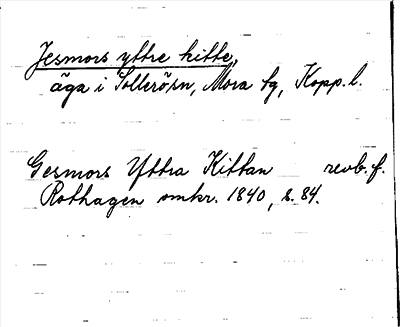 Jesmors yttre kitte,
äga i Sollerösn, Mora tg, Kopp. l.
Gesmors Yttra Kittan revb. f.
Rothagen omkr. 1840, s. 84.